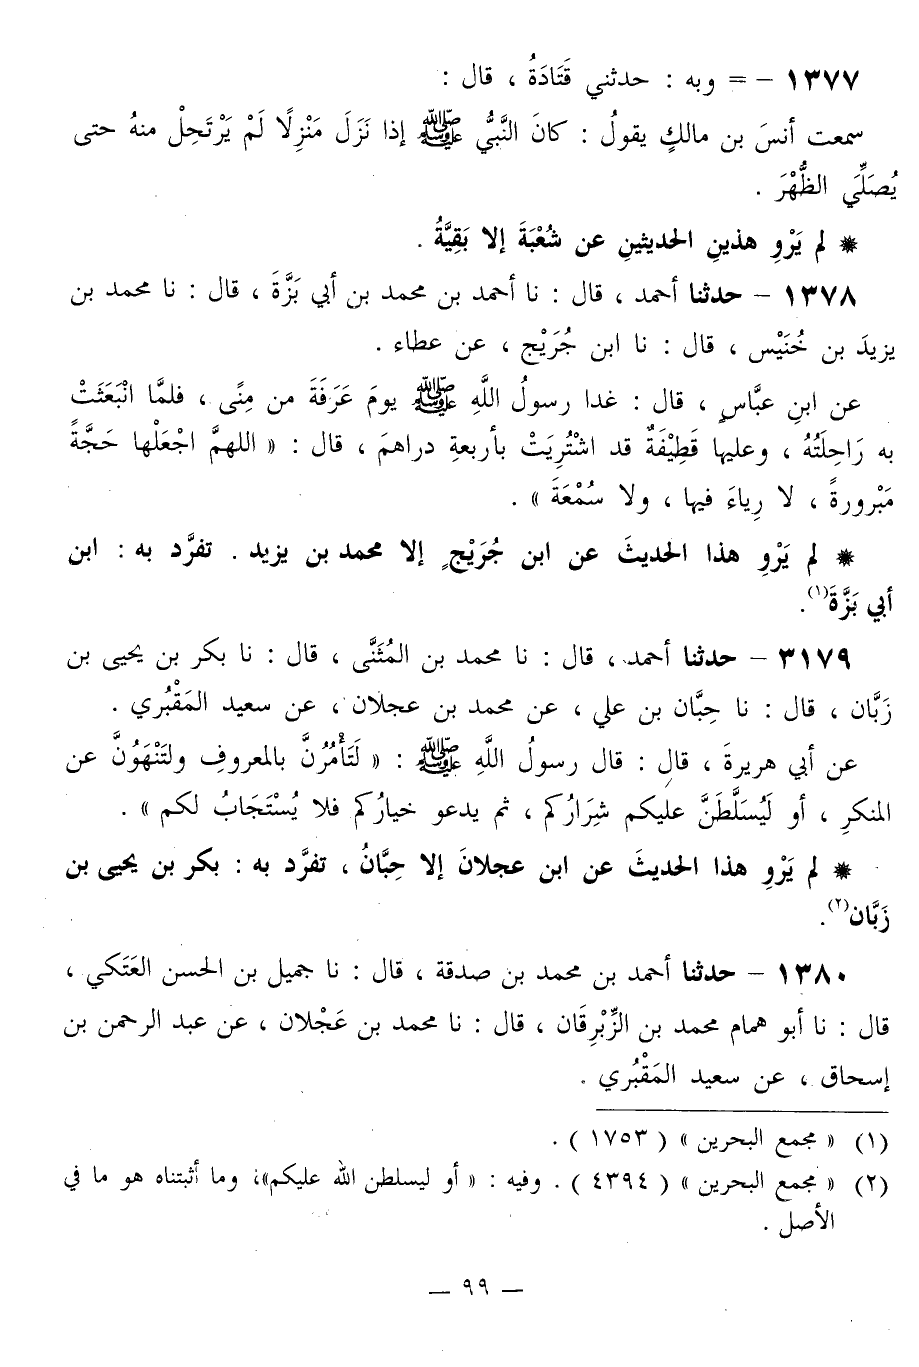 ١٣٧٧ - = وبه : حدثني قَتَادَةُ ، قال :
سمعت أنسَ بن مالكٍ يقولُ : كانَ النَّبيُّ ﷺ إذا نَزَلَ مَنْزِلًا لَمْ يَرْتَحِلْ منهُ حتى
يُصَلِّيَ الظُّهْرَ .
* لم يَرْوِ هذينِ الحديثينِ عن شُعْبَةَ إلا بَقِيَّةُ .
١٣٧٨ - حدثنا أحمد ، قال : نا أحمد بن محمد بن أبي بَزَّةَ ، قال : نا محمد بن
يزيدَ بن خُنَيْس ، قال : نا ابن جُرَيْج ، عن عطاء .
عن ابنِ عبَّاسٍ ، قال : غدا رسولُ اللَّهِ ﷺ يومَ عَرَفَةَ من مِنًى ، فلمَّا انْبَعَثَتْ
به رَاحِلَتُهُ ، وعليها قَطِيْفَةٌ قد اشْتُرِيَتْ بأربعةِ دراهمَ ، قال : « اللهمَّ اجْعَلْها حَجَّةً
مَبْرورةً ، لا رِياءَ فيها ، ولا سُمْعَةَ » .
* لم يَرْوِ هذا الحديثَ عن ابن جُرَيْجٍ إلا محمد بن يزيد . تفرَّد به : ابن
أبي بَزَّةَ(١).
٣١٧٩ - حدثنا أحمد ، قال : نا محمد بن المُثَنَّى ، قال : نا بكر بن يحيى بن
زَبَّان ، قال : نا حِبَّان بن علي ، عن محمد بن عجلان ، عن سعيد المَقْبُري .
عن أبي هريرةَ ، قال : قال رسولُ اللَّهِ ﷺ : « لَتَأْمُرُنَّ بالمعروفِ ولتَنْهَوُنَّ عن
المنكرِ ، أو لَيُسَلَّطَنَّ عليكم شِرَارُكم ، ثم يدعو خيارُكم فلا يُسْتَجَابُ لكم » .
* لم يَرْوِ هذا الحديثَ عن ابن عجلانَ إلا حِبَّانُ ، تفرَّد به : بكر بن يحيى بن
زَبَّان(٢).
١٣٨٠ - حدثنا أحمد بن محمد بن صدقة ، قال : نا جميل بن الحسن العَتَكي ،
قال : نا أبو همام محمد بن الزِّبْرِقَان ، قال : نا محمد بن عَجْلان ، عن عبد الرحمن بن
إسحاق ، عن سعيد المَقْبُري .
(١) « مجمع البحرين » ( ١٧٥٣ ) .
(٢) « مجمع البحرين » ( ٤٣٩٤ ) . وفيه : « أو ليسلطن الله عليكم»، وما أثبتناه هو ما في
الأصل .
— ٩٩ —